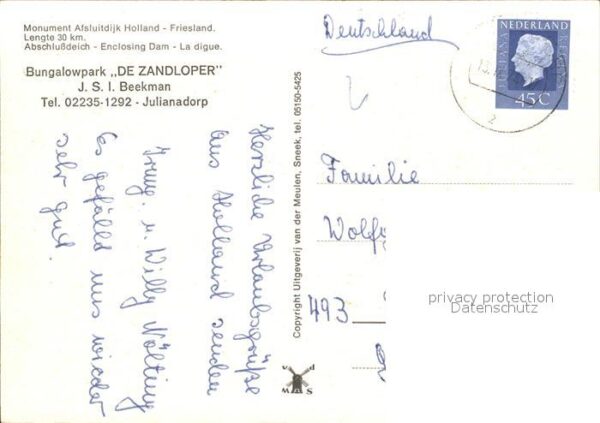 Monument Afsluitdijk Holland - Friesland.
Lengte 30 km.
Abschlußdeich - Enclosing Dam - La digue.
Bungalowpark „DE ZANDLOPER"
J. S. I. Beekman
Tel. 02235-1292 - Julianadorp
Herzliche Urlaubsgrüße
aus Holland senden
Irmg. u. Willy Nölting
Es gefällt uns wieder
sehr gut.
Copyright Uitgeverij van der Meulen, Sneek, tel. 05150-5425
v d
W S M
Deutschland
NEDERLAND
45 C
Familie
Wolfg
493
privacy protection
Datenschutz